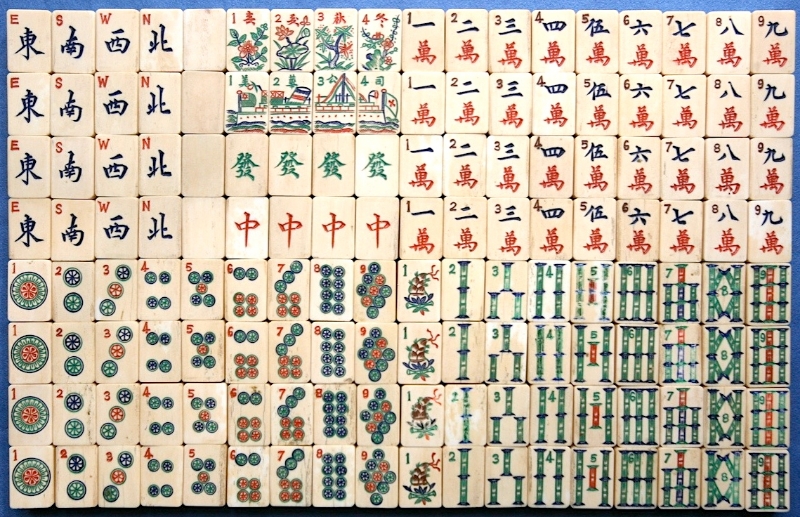 E東 S南 W西 N北 1春 2夏 3秋 4冬 1一萬 2二萬 3三萬 4四萬 5伍萬 6六萬 7七萬 8八萬 9九萬
E東 S南 W西 N北 1美 2華 3公 4司 1一萬 2二萬 3三萬 4四萬 5伍萬 6六萬 7七萬 8八萬 9九萬
E東 S南 W西 N北 發 發 發 發 1一萬 2二萬 3三萬 4四萬 5伍萬 6六萬 7七萬 8八萬 9九萬
E東 S南 W西 N北 中 中 中 中 1一萬 2二萬 3三萬 4四萬 5伍萬 6六萬 7七萬 8八萬 9九萬
1 2 3 4 5 6 7 8 9 1 2 3 4 5 6 7 8 9
1 2 3 4 5 6 7 8 9 1 2 3 4 5 6 7 8 9
1 2 3 4 5 6 7 8 9 1 2 3 4 5 6 7 8 9
1 2 3 4 5 6 7 8 9 1 2 3 4 5 6 7 8 9